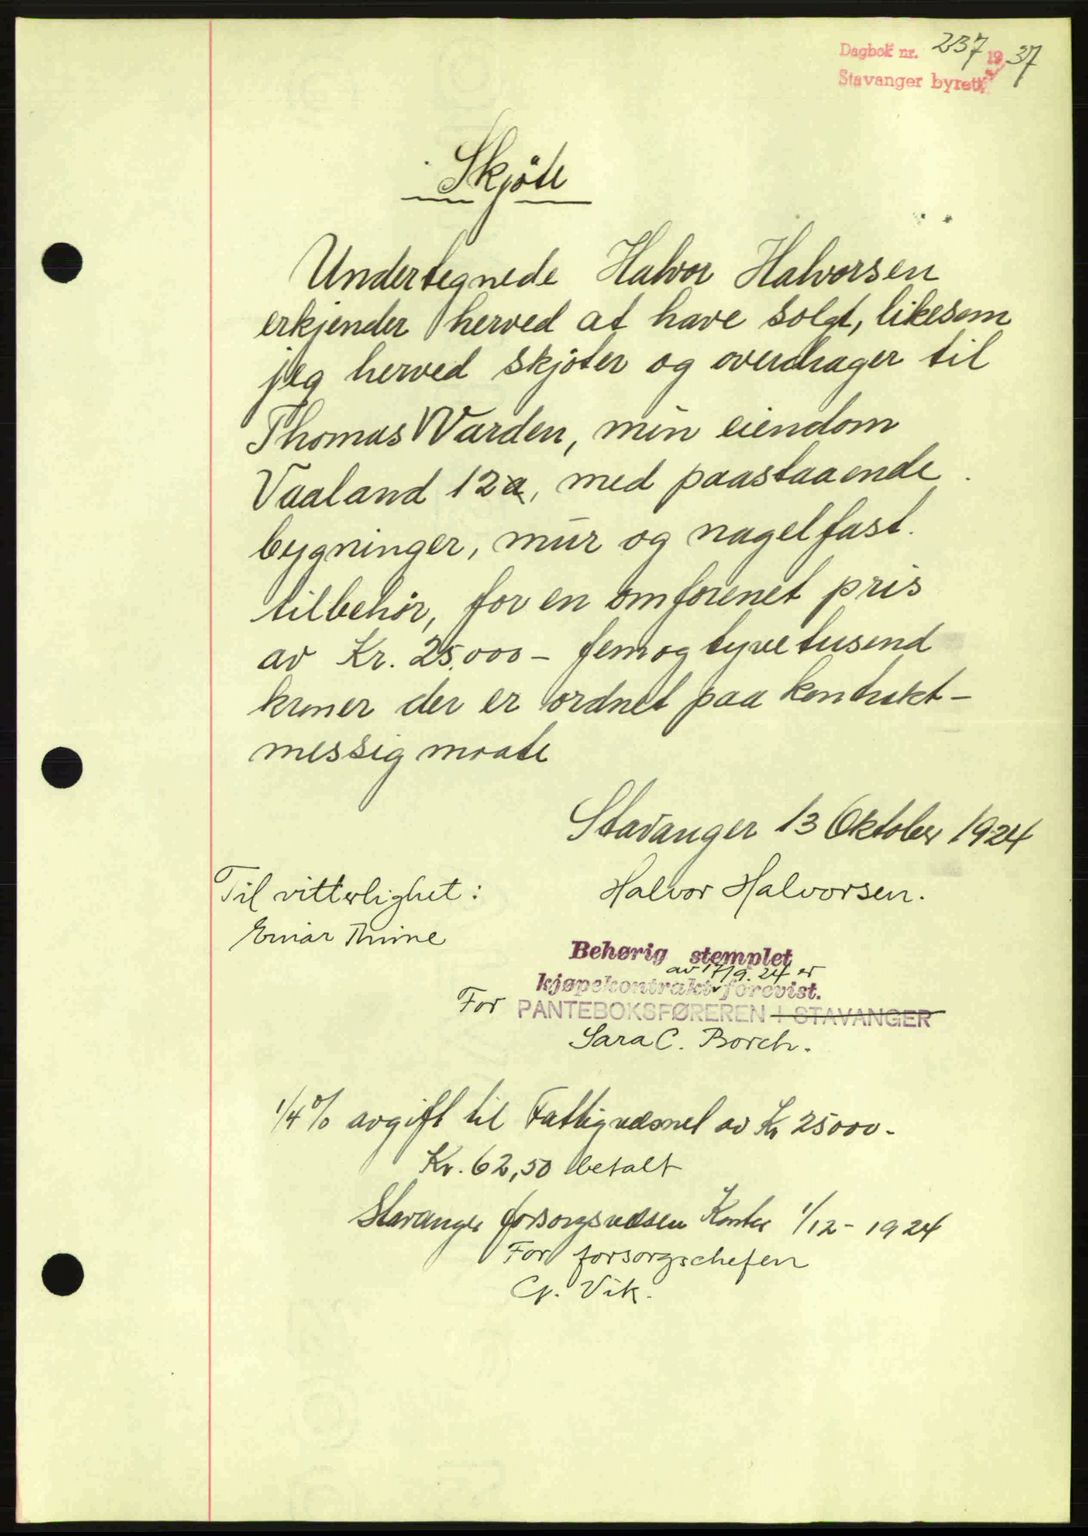 Dagbok nr. 237 1937
Stavanger byrett
Skjøte
Undertegnede Halvor Halvorsen
erkjender herved at have solgt, likesom
jeg herved skjøter og overdrager til
Thomas Warden, min eiendom
Vaaland 12a, med paastaaende
bygninger, mur og nagelfast.
tilbehør, for en omforenet pris
av Kr. 25.000 - femogtyvetusend
kroner der er ordnet paa kontrakt-
messig maate
Stavanger 13 Oktober 1924
Til vitterlighet: Halvor Halvorsen.
Einar
Behørig stemplet
av 17/9. 24 er
kjøpekontrakt forevist.
For PANTEBOKSFØREREN I STAVANGER
Sara C. Borch.
1/4% avgift til Fattigvæsnet av Kr 25000-
Kr. 62,50 betalt
Stavanger forsorgsvæsen Kontor 1/12 - 1924
For forsorgschefen
G. Vik.